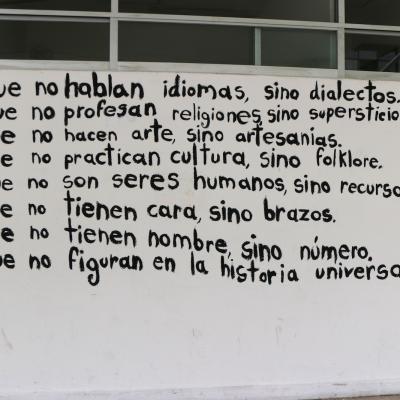 ue no hablan idiomas, sino dialectos.
ue no profesan religiones, sino supersticio
e no hacen arte, sino artesanías.
e no practican cultura, sino folklore.
e no son seres humanos, sino recurso
e no tienen cara, sino brazos.
e no tienen nombre, sino número.
ue no figuran en la historia universa